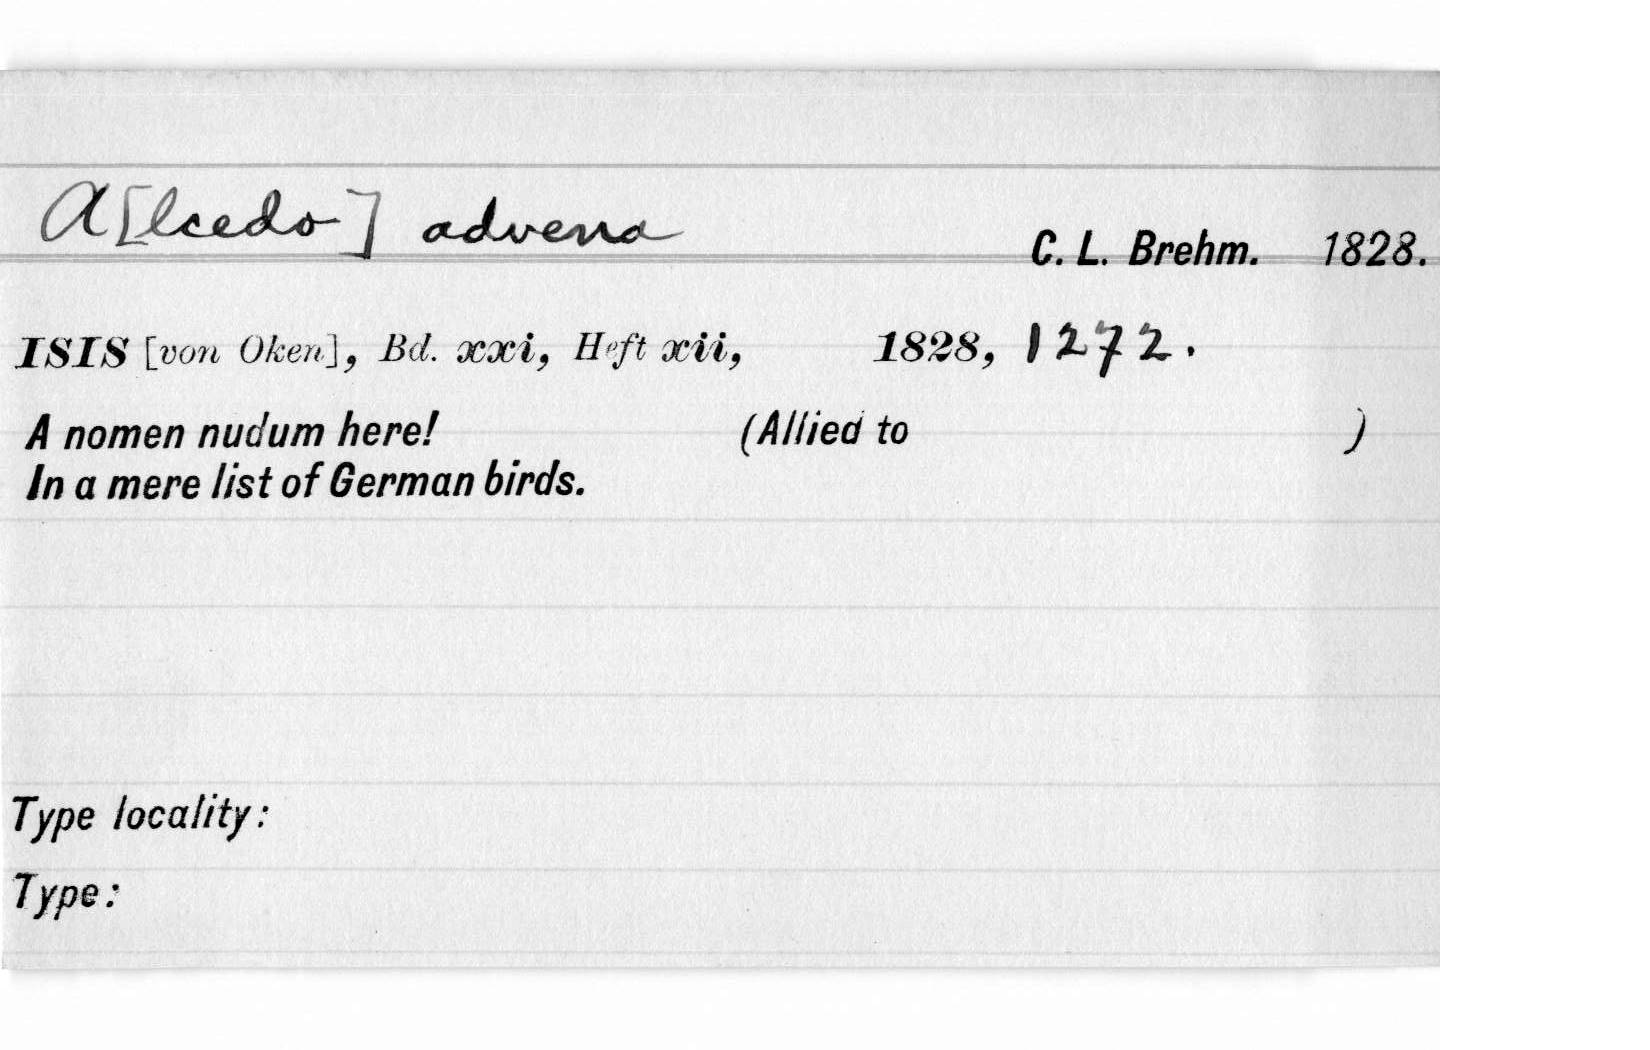 A[lcedo] advena
C. L. Brehm. 1828.
ISIS [von Oken], Bd. xxi, Heft xii, 1828, 1272.
A nomen nudum here! (Allied to )
In a mere list of German birds.
Type locality:
Type: